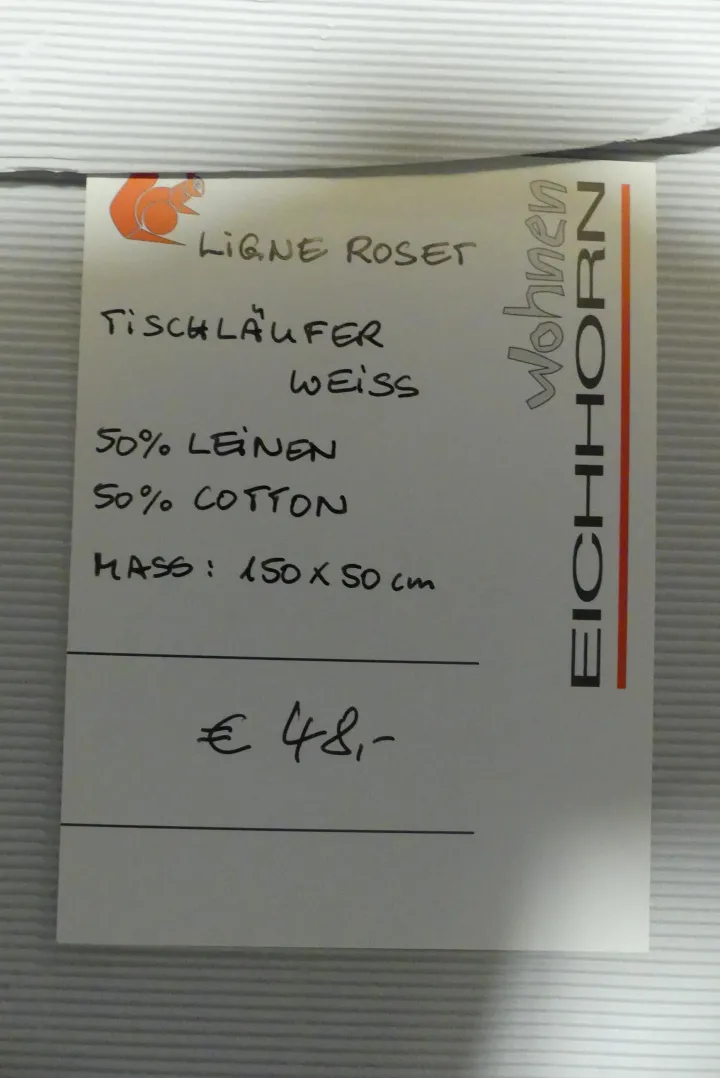 LIGNE ROSET
TISCHLÄUFER
WEISS
50% LEINEN
50% COTTON
MASS: 150 X 50 cm
€ 48,-
Wohnen
EICHHORN